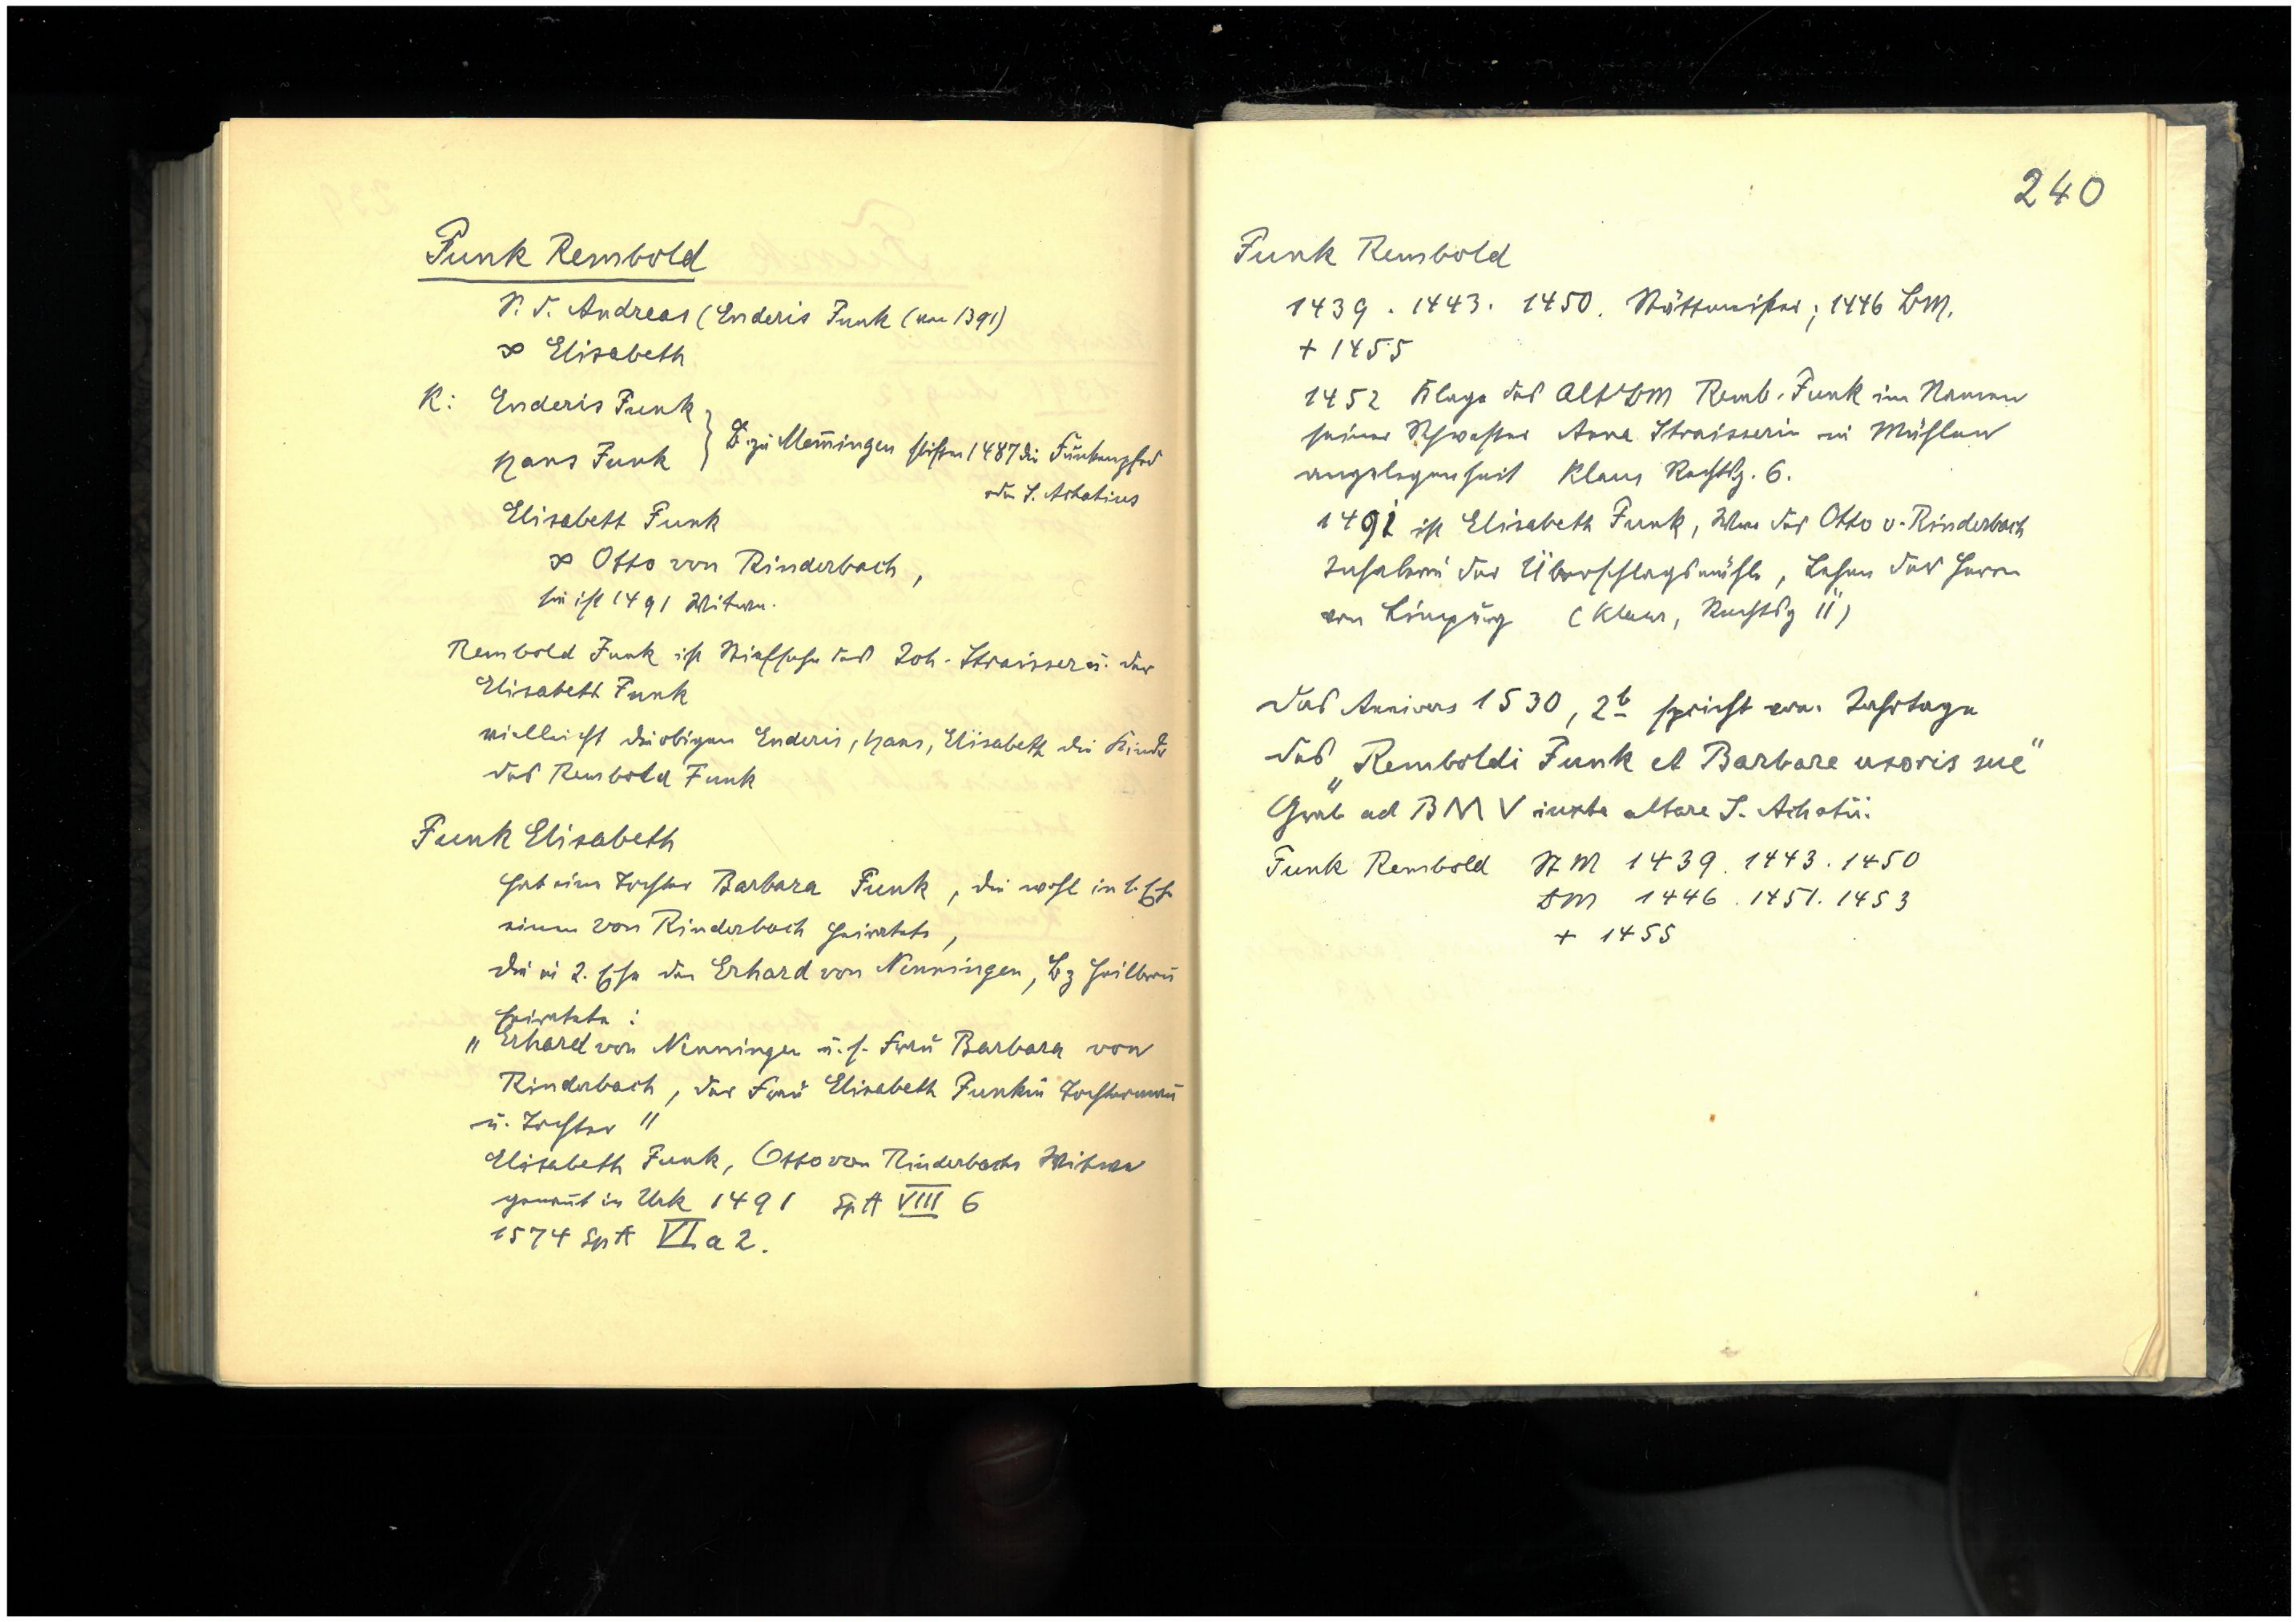 Funk Rembold
S. d. Andreas (Enderis Funk (um 1391)
∞ Elisabeth
K: Enderis Funk
Hans Funk } B. zu Memingen stiften 1487 die Funkenpfrd
od. S. Achatius
Elisabeth Funk
∞ Otto von Rinderbach,
sie ist 1491 Witwe.
Rembold Funk ist Stiefsohn des Joh. Straisser u. der
Elisabeth Funk
vielleicht die obigen Enderis, Hans, Elisabeth die Kinder
des Rembold Funk
Funk Elisabeth
hat eine Tochter Barbara Funk, die wohl in 1. Ehe
einen von Rinderbach heiratete,
die in 2. Ehe den Erhard von Nenningen, Bg Heilbron
heiratete:
"Erhard von Nenningen u. s. Frau Barbara von
Rinderbach, der Frau Elisabeth Funkin Tochterman
u. Tochter"
Elisabeth Funk, Otto von Rinderbachs Witwe
genant in Urk 1491 SpA VIII 6
1574 SpA VI a 2.
240
Funk Rembold
1439. 1443. 1450. Stättmeister; 1446 BM.
+ 1455
1452 Klage des Alt BM Remb. Funk im Namen
seiner Schwester Anna Straisserin in Mühlen
angelegenheit Klaus Rechtsg. 6.
1491 ist Elisabeth Funk, Wwe des Otto v. Rinderbach
Inhaberin der Überschlagsmühle, Lehen der Herrn
von Limpurg (Klaus, Rechtsg 11)
Das Annivers 1530, 2b spricht von Jahrtage
des "Remboldi Funk et Barbare uxoris sue"
Grab ad BMV iuxta altare S. Achatii.
Funk Rembold St M 1439. 1443. 1450
BM 1446. 1451. 1453
+ 1455